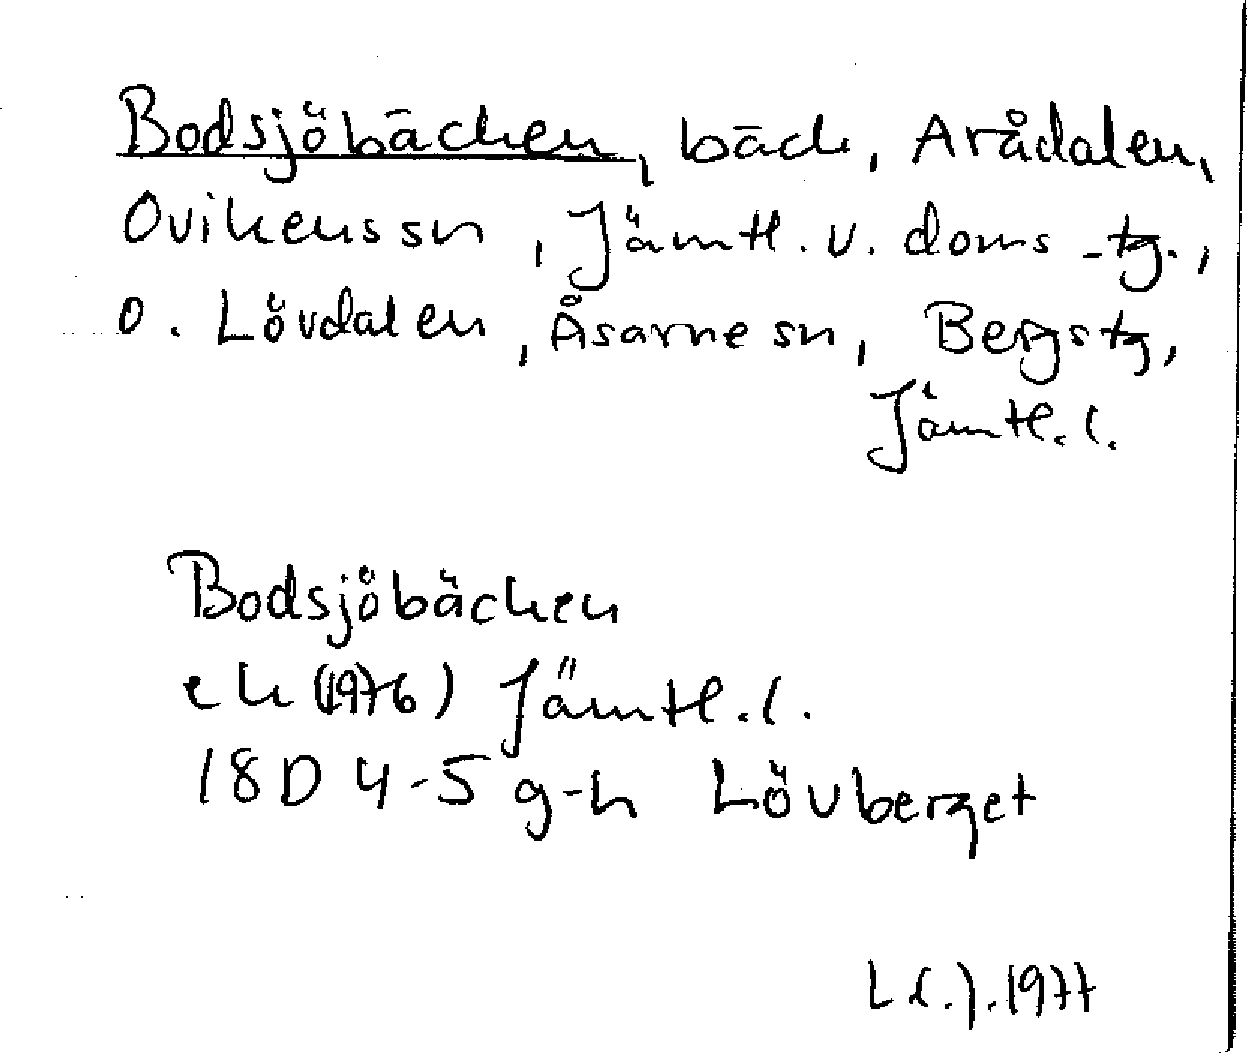 Bodsjöbäcken, bäck, Arådalen,
Ovikens sn, Jämtl. v. doms-tg.,
o. Lövdalen, Åsarne sn, Bergs tg,
Jämtl. l.
Bodsjöbäcken
ek (1976) Jämtl. l.
18D 4-5 g-h Lövberget
1977